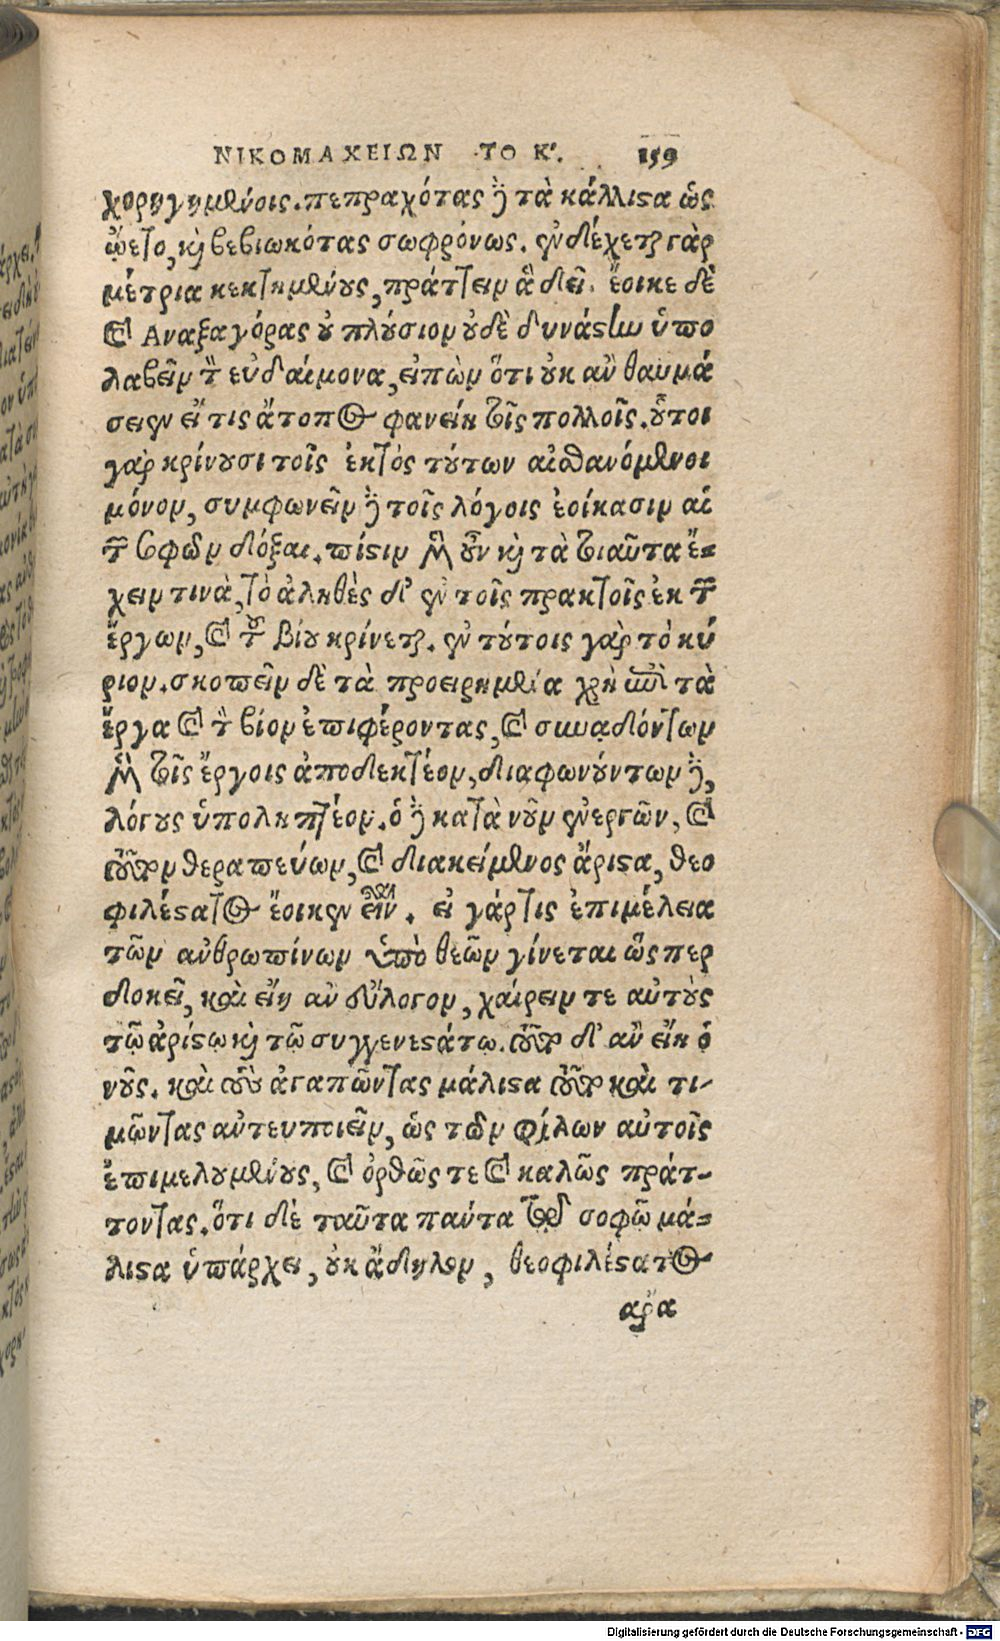 ΝΙΚΟΜΑΧΕΙΩΝ ΤΟ Κ. 159
χορηγημένοις. πεπραχότας δὲ τὰ κάλλιστα ὡς
ᾤετο, καὶ βεβιωκότας σωφρόνως. ἐνδέχεται γὰρ
μέτρια κεκτημένους, πράττειν ἃ δεῖ. ἔοικε δὲ
καὶ Αναξαγόρας οὐ πλούσιον οὐδὲ δυνάστην ὑπο
λαβεῖν τὸν εὐδαίμονα, εἰπὼν ὅτι οὐκ ἂν θαυμά
σειεν εἴ τις ἄτοπος φανείη τοῖς πολλοῖς. οὗτοι
γὰρ κρίνουσι τοῖς ἐκτὸς τούτων αἰσθανόμενοι
μόνον, συμφωνεῖν δὲ τοῖς λόγοις ἐοίκασιν αἱ
τῶν σοφῶν δόξαι. πίστιν μὲν οὖν καὶ τὰ τοιαῦτα ἔ=
χειν τινὰ, τὸ ἀληθὲς δ' ἐν τοῖς πρακτοῖς ἐκ τῶν
ἔργων, καὶ τοῦ βίου κρίνεται. ἐν τούτοις γὰρ τὸ κύ
ριον. σκοπεῖν δὲ τὰ προειρημένα χρὴ ἐπὶ τὰ
ἔργα καὶ τὸν βίον ἐπιφέροντας, καὶ συναδόντων
μὲν τοῖς ἔργοις ἀποδεκτέον, διαφωνούντων δὲ,
λόγους ὑποληπτέον. ὁ δὲ κατὰ νοῦν ἐνεργῶν, καὶ
τοῦτον θεραπεύων, καὶ διακείμενος ἄριστα, θεο
φιλέστατος ἔοικεν εἶναι. εἰ γάρ τις ἐπιμέλεια
τῶν ἀνθρωπίνων ὑπὸ θεῶν γίνεται ὥς περ
δοκεῖ, καὶ εἴη ἂν εὔλογον, χαίρειν τε αὐτοὺς
τῷ ἀρίστῳ καὶ τῷ συγγενεστάτω. τοῦτο δ' ἂν εἴη ὁ
νοῦς. καὶ τοὺς ἀγαπῶντας μάλιστα τοῦτο καὶ τι-
μῶντας αὐτευποιεῖν, ὡς τῶν φίλων αὐτοῖς
ἐπιμελουμένους, καὶ ὀρθῶς τε καὶ καλῶς πράτ-
τοντας. ὅτι δὲ ταῦτα πάντα τῷ σοφῷ μά=
λιστα ὑπάρχει, οὐκ ἄδηλον, θεοφιλέστατος
ἄρα
Digitalisierung gefördert durch die Deutsche Forschungsgemeinschaft - DFG